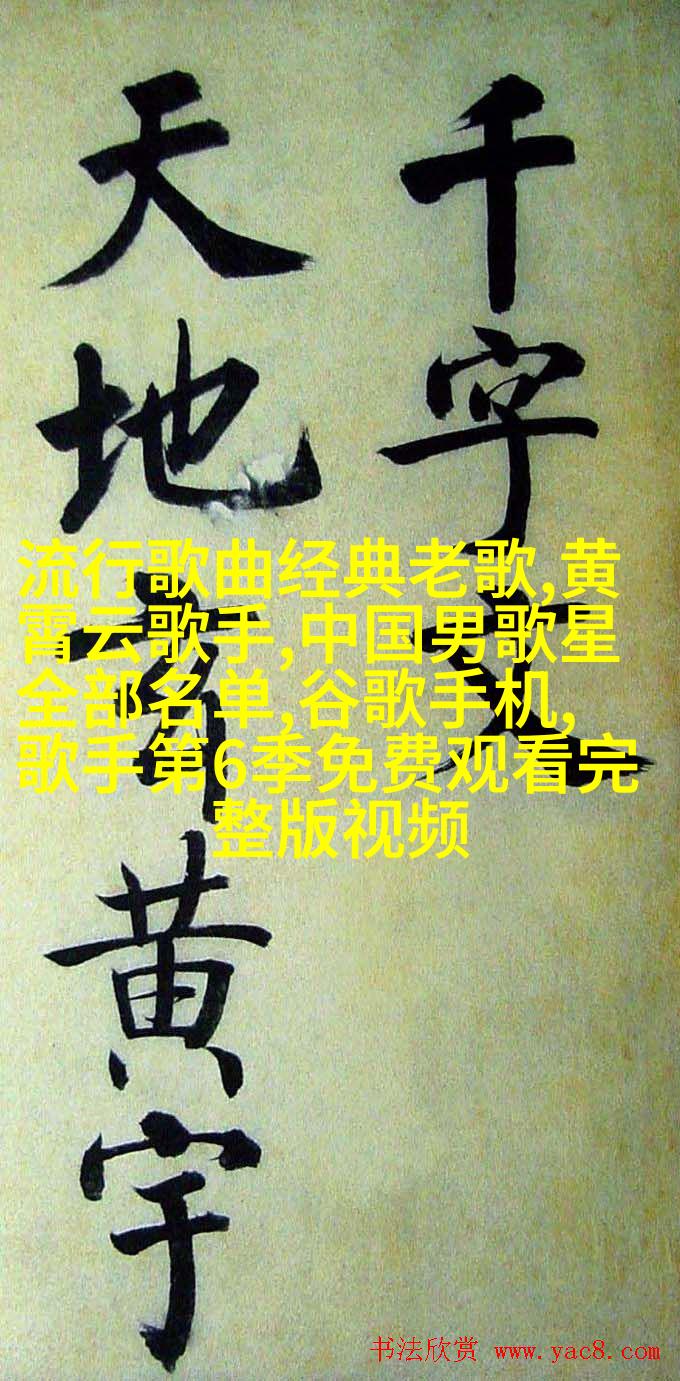 千字文
天地黄宇
流行歌曲经典老歌,黄
霄云歌手,中国男歌星
全部名单,谷歌手机,
歌手第6季免费观看完
整版视频
书法欣赏 www.yac8.com